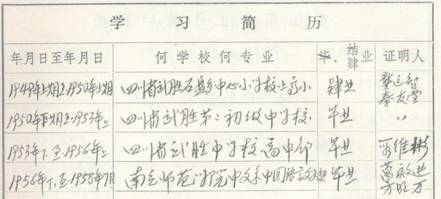 学习简历
年月日至年月日 何学校何专业 毕、结、肄业 证明人
1949年上期至1950年上期 四川省武胜石盘乡中心小学校 肄业
秦友堂
1950年下期至1953年上 四川省武胜第二初级中学校 毕业 〃
1953年下至1956年上 四川省武胜中学校高中部 毕业
1956年下至1958年7月 南充师范学院中文系中国语言文学 毕业